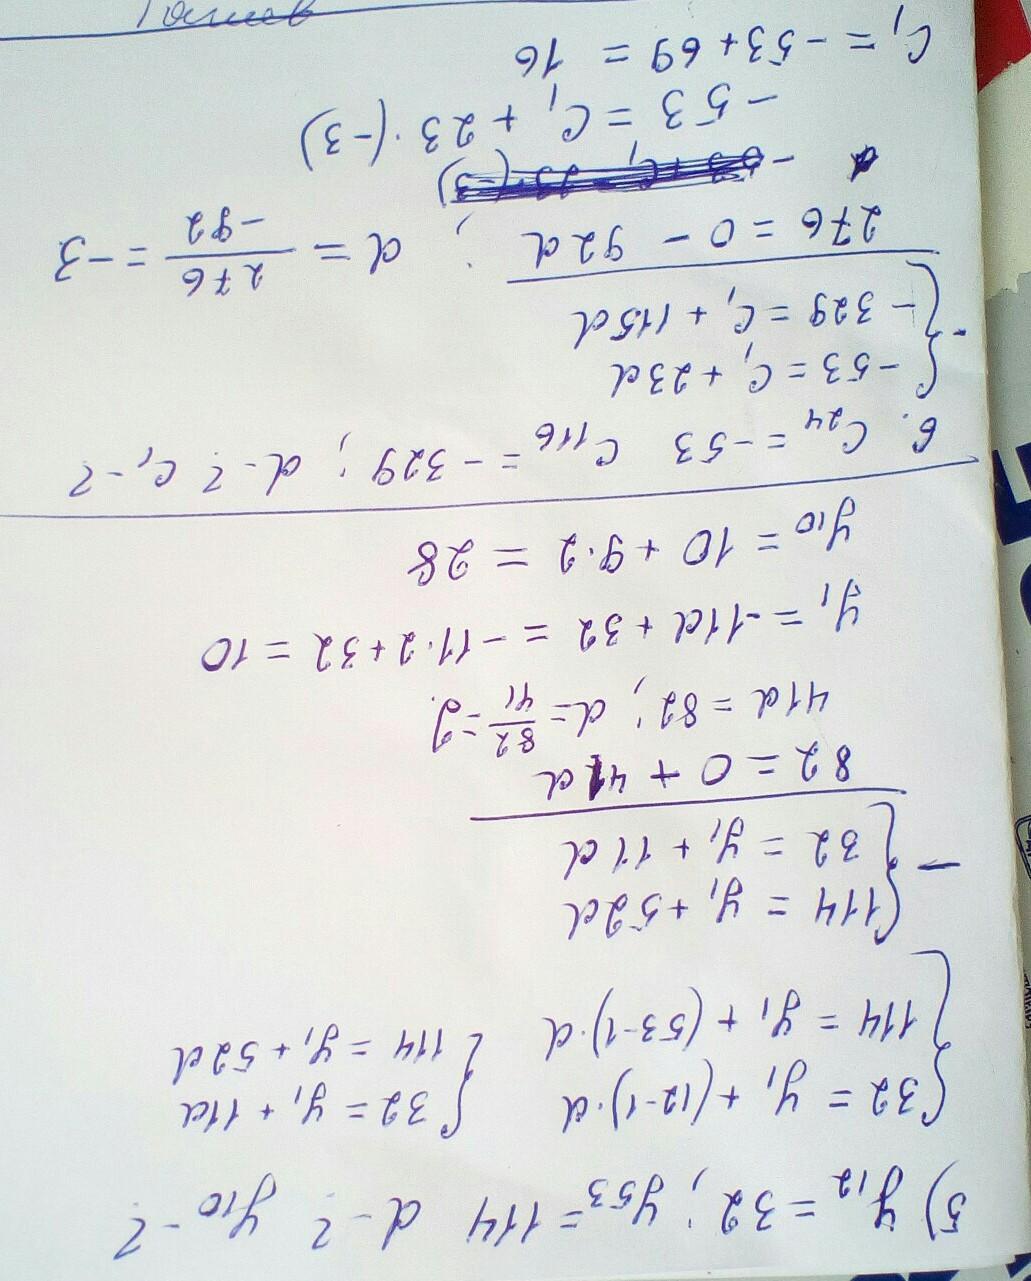 5) y₁₂ = 32; y₅₃ = 114 d - ? y₁₀ - ?
{ 32 = y₁ + (12-1)·d { 32 = y₁ + 11d
114 = y₁ + (53-1)·d 114 = y₁ + 52d
- { 114 = y₁ + 52d
32 = y₁ + 11d
82 = 0 + 41d
41d = 82; d = 82/41 = 2.
y₁ = -11d + 32 = -11·2 + 32 = 10
y₁₀ = 10 + 9·2 = 28
6. C₂₄ = -53 C₁₁₆ = -329; d - ? C₁ - ?
- { -53 = C₁ + 23d
-329 = C₁ + 115d
276 = 0 - 92d; d = 276/-92 = -3
-53 = C₁ + 23·(-3)
C₁ = -53 + 69 = 16